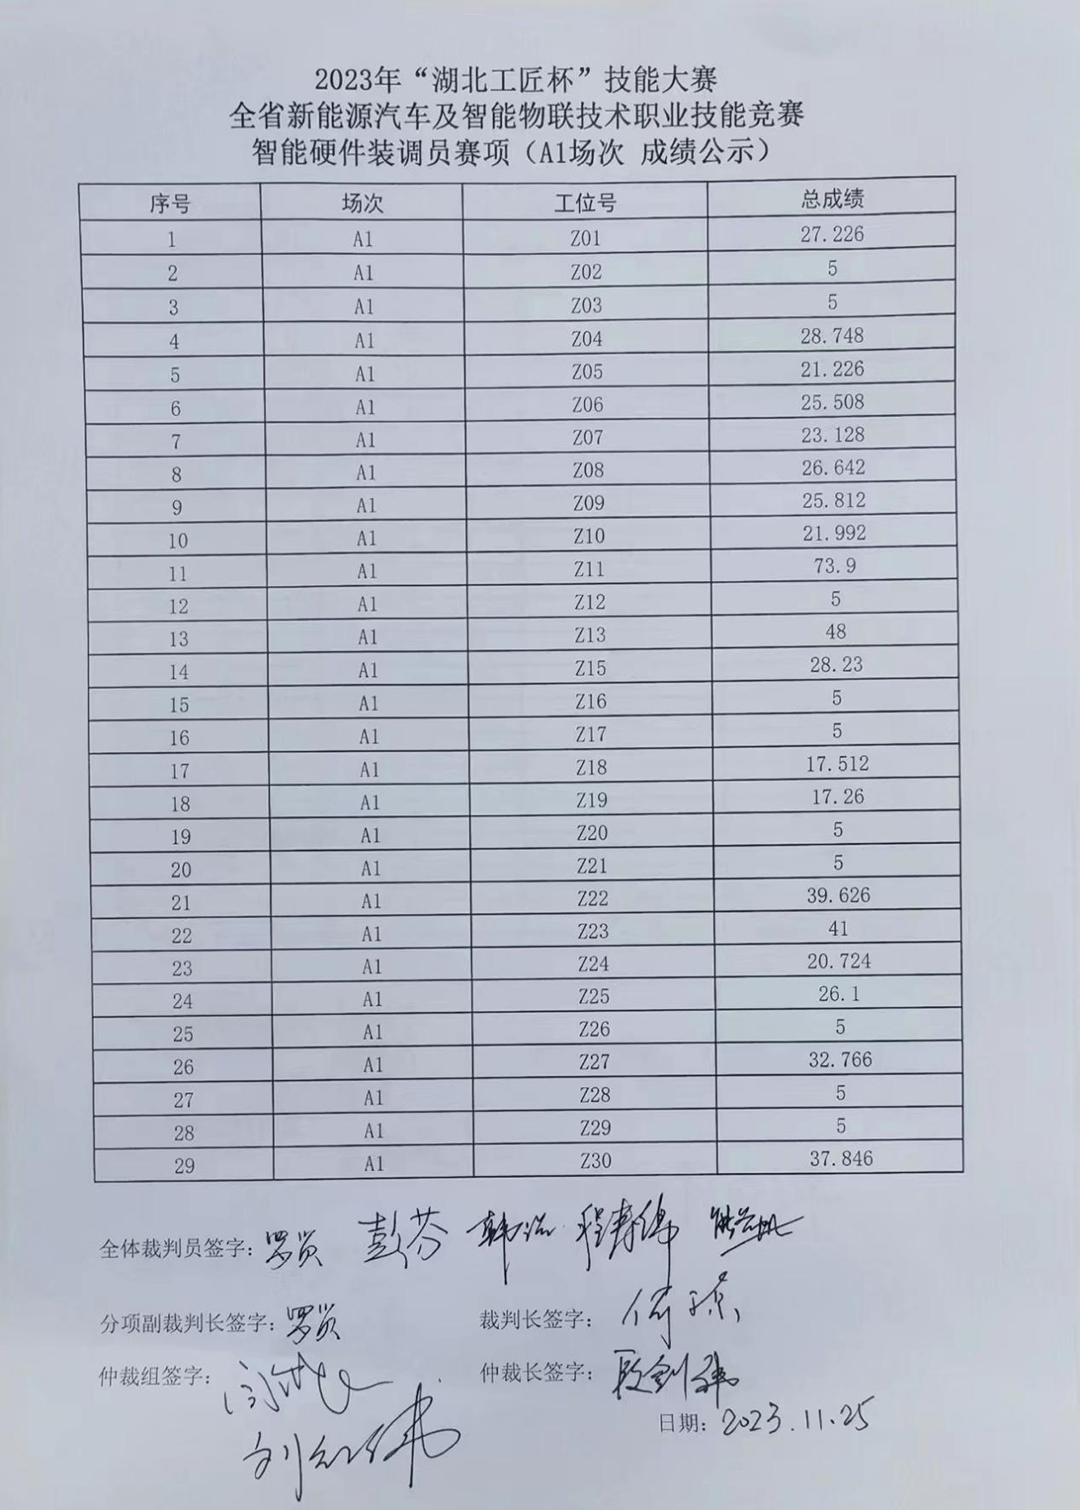 2023年“湖北工匠杯”技能大赛
全省新能源汽车及智能物联技术职业技能竞赛
智能硬件装调员赛项（A1场次 成绩公示）
序号 场次 工位号 总成绩
1 A1 Z01 27.226
2 A1 Z02 5
3 A1 Z03 5
4 A1 Z04 28.748
5 A1 Z05 21.226
6 A1 Z06 25.508
7 A1 Z07 23.128
8 A1 Z08 26.642
9 A1 Z09 25.812
10 A1 Z10 21.992
11 A1 Z11 73.9
12 A1 Z12 5
13 A1 Z13 48
14 A1 Z15 28.23
15 A1 Z16 5
16 A1 Z17 5
17 A1 Z18 17.512
18 A1 Z19 17.26
19 A1 Z20 5
20 A1 Z21 5
21 A1 Z22 39.626
22 A1 Z23 41
23 A1 Z24 20.724
24 A1 Z25 26.1
25 A1 Z26 5
26 A1 Z27 32.766
27 A1 Z28 5
28 A1 Z29 5
29 A1 Z30 37.846
全体裁判员签字： 彭芬
分项副裁判长签字： 裁判长签字：
仲裁组签字： 仲裁长签字： 段剑
日期：2023.11.25